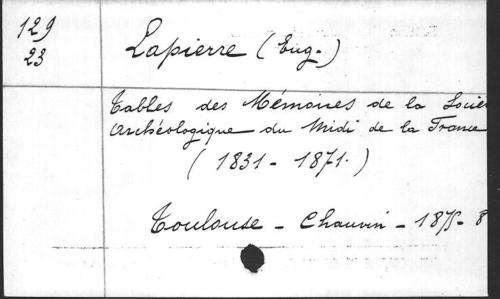 129
23
Lapierre (Eug.)
Tables des Mémoires de la Socié
Archéologique du Midi de la France
(1831 - 1871.)
Toulouse - Chauvin - 1875 - 8